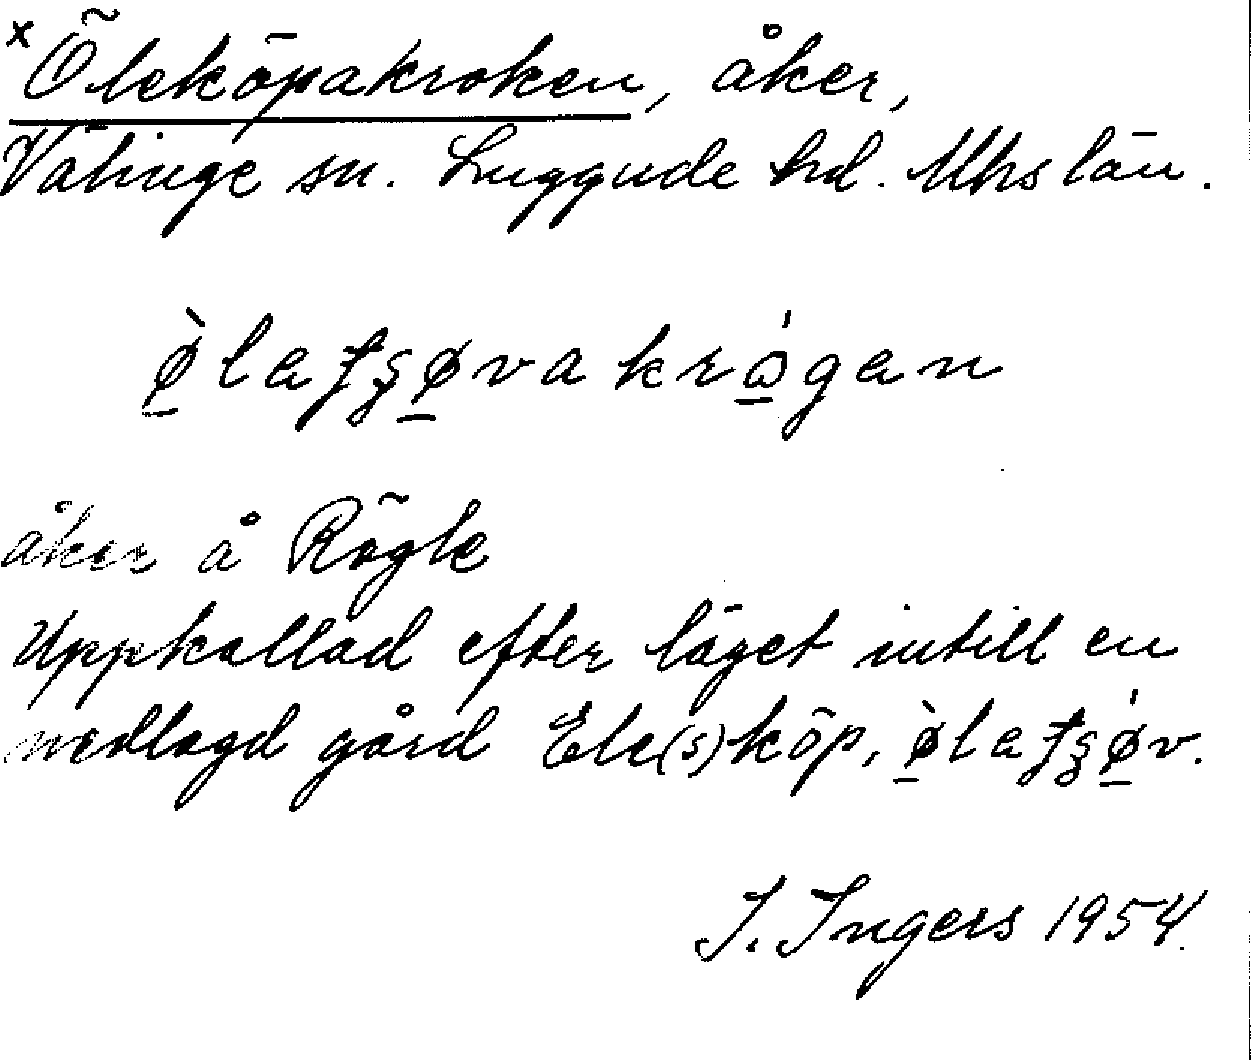 x Öleköpakroken, åker,
Välinge sn. Luggude hd. Mhs län.
ø̀laʈʂøvakrógan
åker å Rögle
Uppkallad efter läget intill en
nedlagd gård Ele(s)köp, ø̀laʈʂǿv.
I. Ingers 1954.